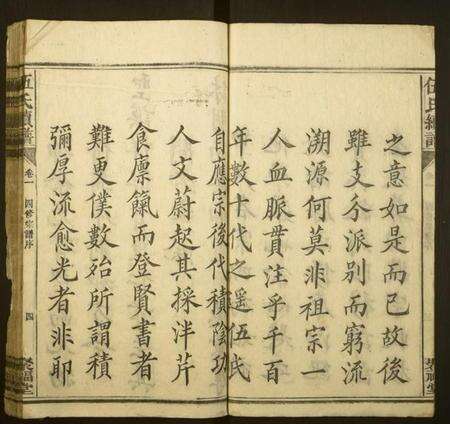 伍氏續譜
之意如是而已故後
雖支分派別而窮流
溯源何莫非祖宗一
人血脈貫注乎千百
年數十代之遥伍氏
自應宗後代積陰功
人文蔚起其採泮芹
食廪餼而登賢書者
難更僕數殆所謂積
彌厚流愈光者非耶
伍氏續譜
卷一
四修宗譜序
四